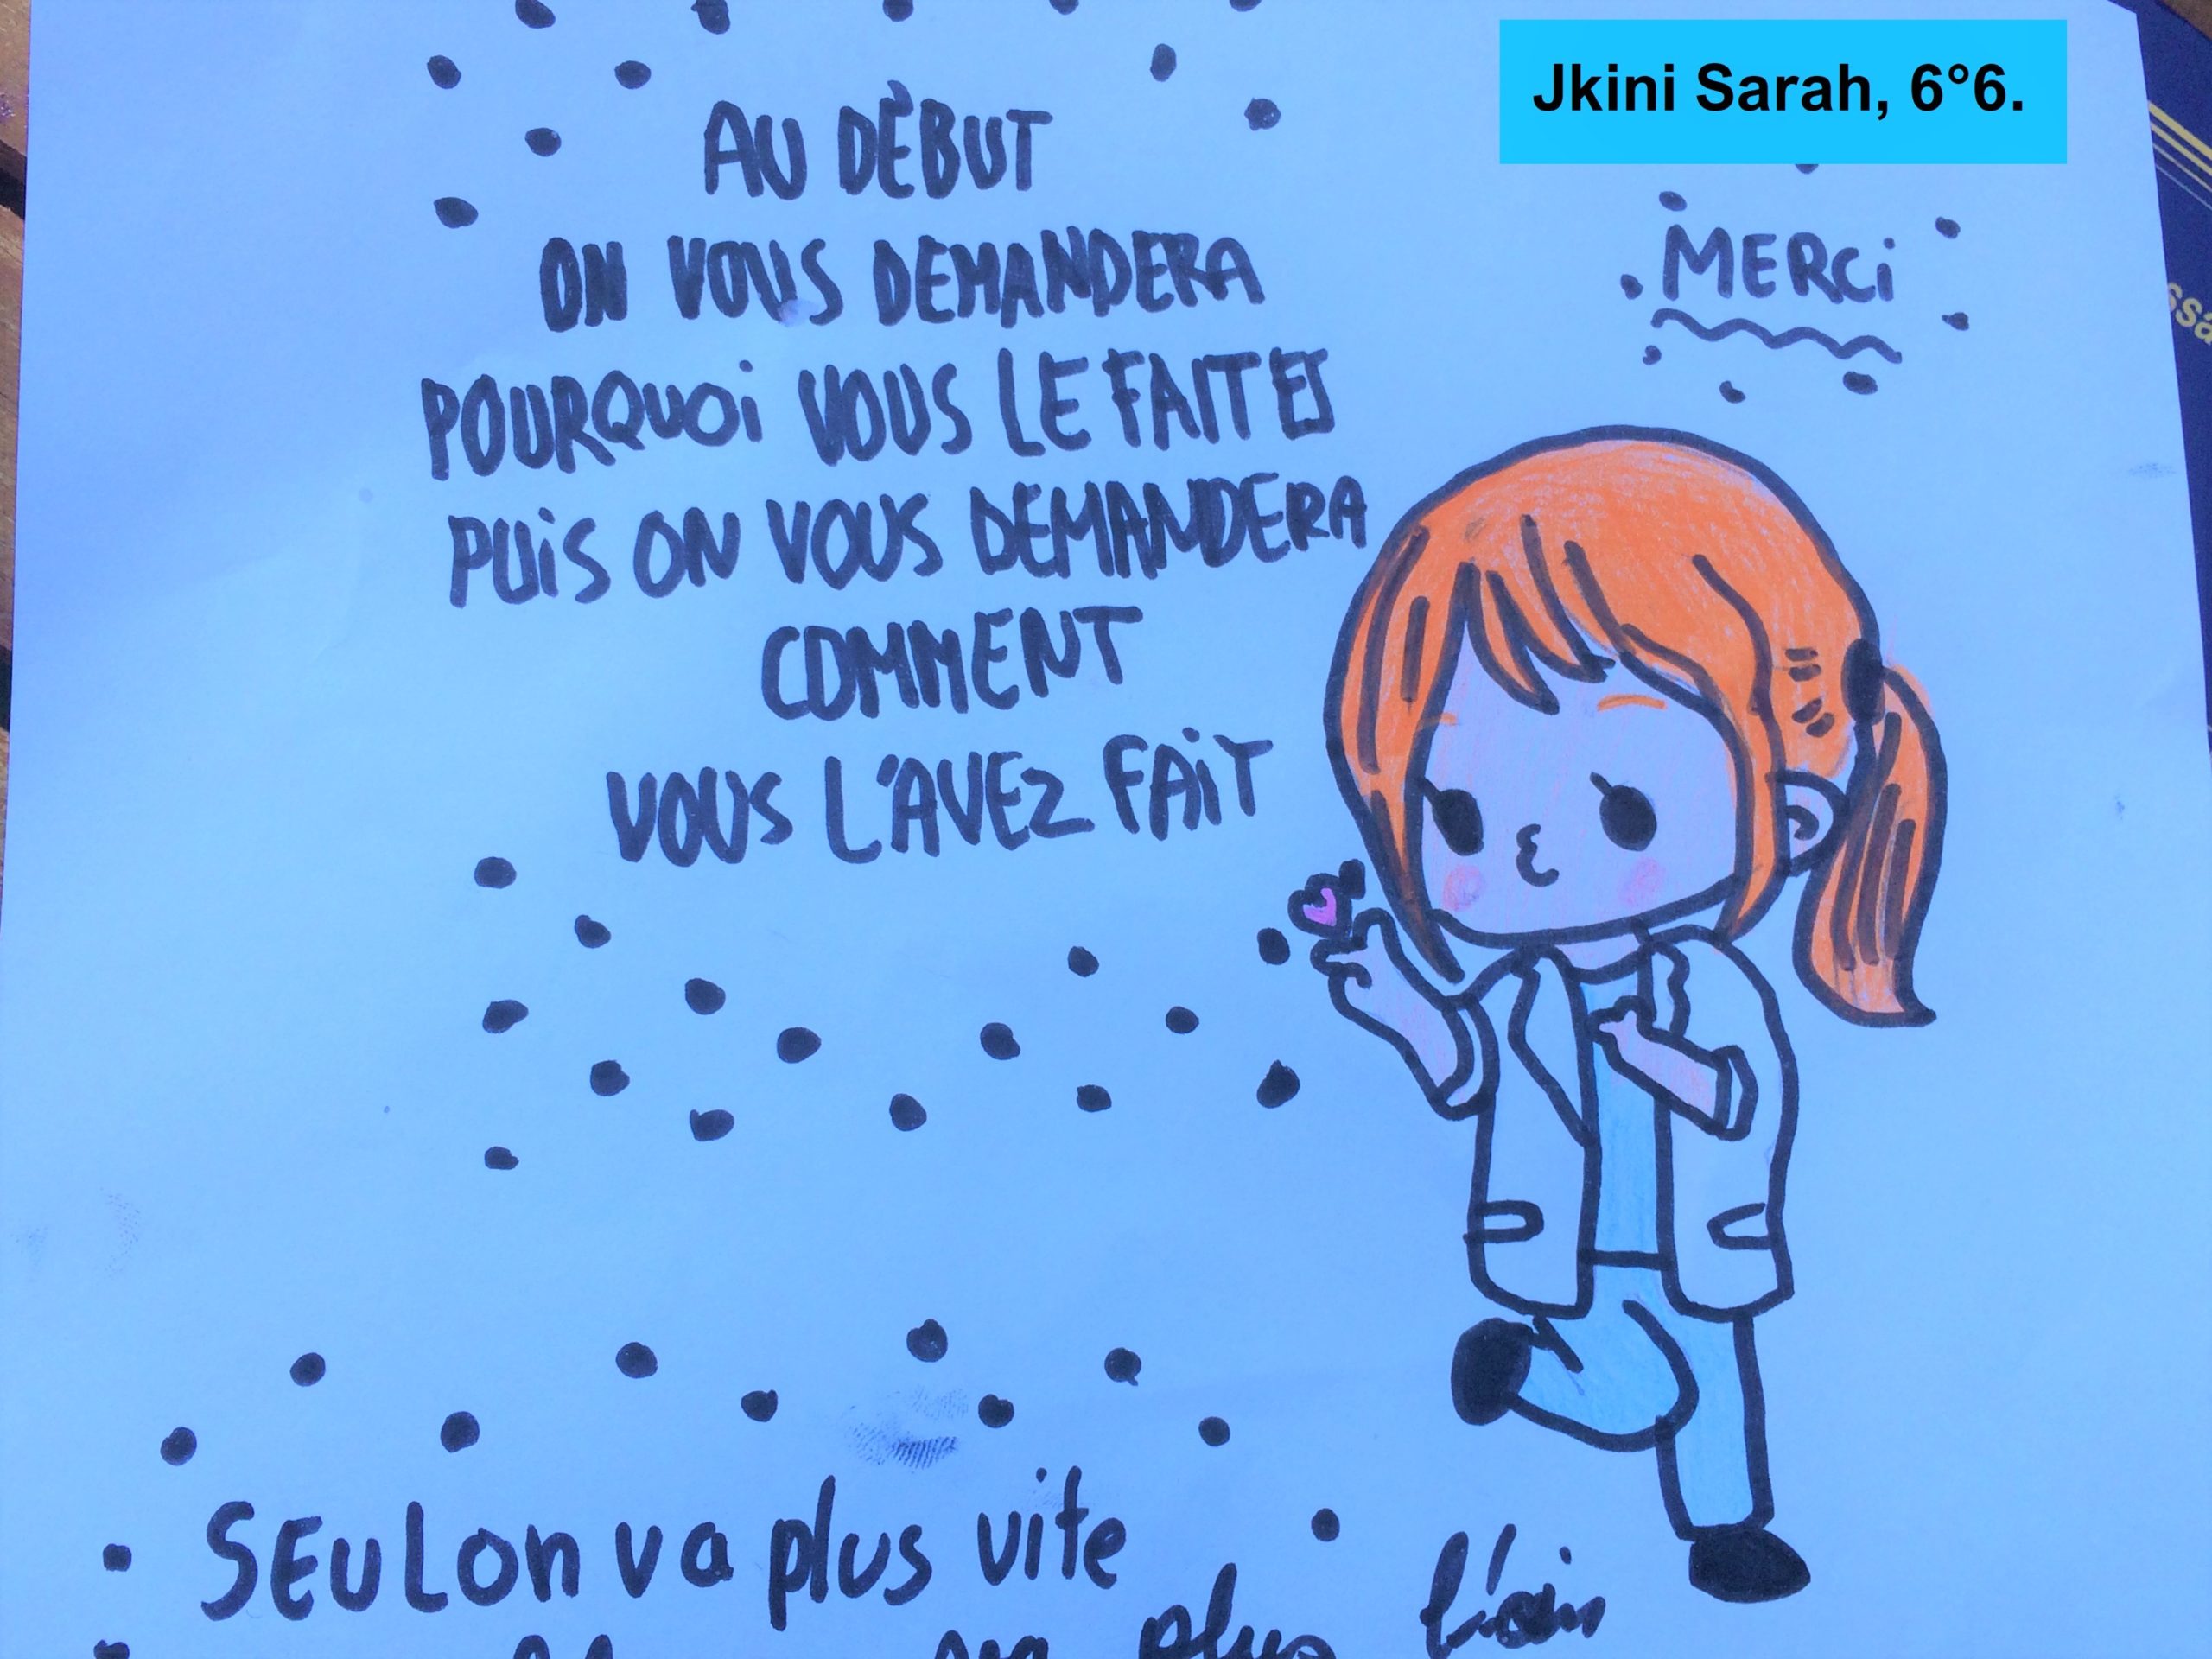 Jkini Sarah, 6°6.
AU DÉBUT
ON VOUS DEMANDERA
POURQUOi VOUS LE FAITES
PUiS ON VOUS DEMANDERA
COMMENT
VOUS L'AVEZ FAiT
MERCi
SEUL on va plus vite
plus